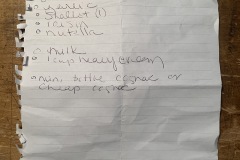 garlic
Shallot (1)
raisin
nutella
milk
1 cup heavy cream
mini bottle cognac or
cheap cognac